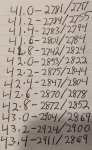 41.0-2781/2757
41.2-2784/2755
41.4-2783/2794
41.6-2801/2784
41.8-2742/2824
42.0-2893/2822
42.2-2875/2844
42.4-2847/2804
42.6-2870/2878
42.8-2872/2852
43.0-2904/2869
43.2-2924/2900
43.4-2911/2869